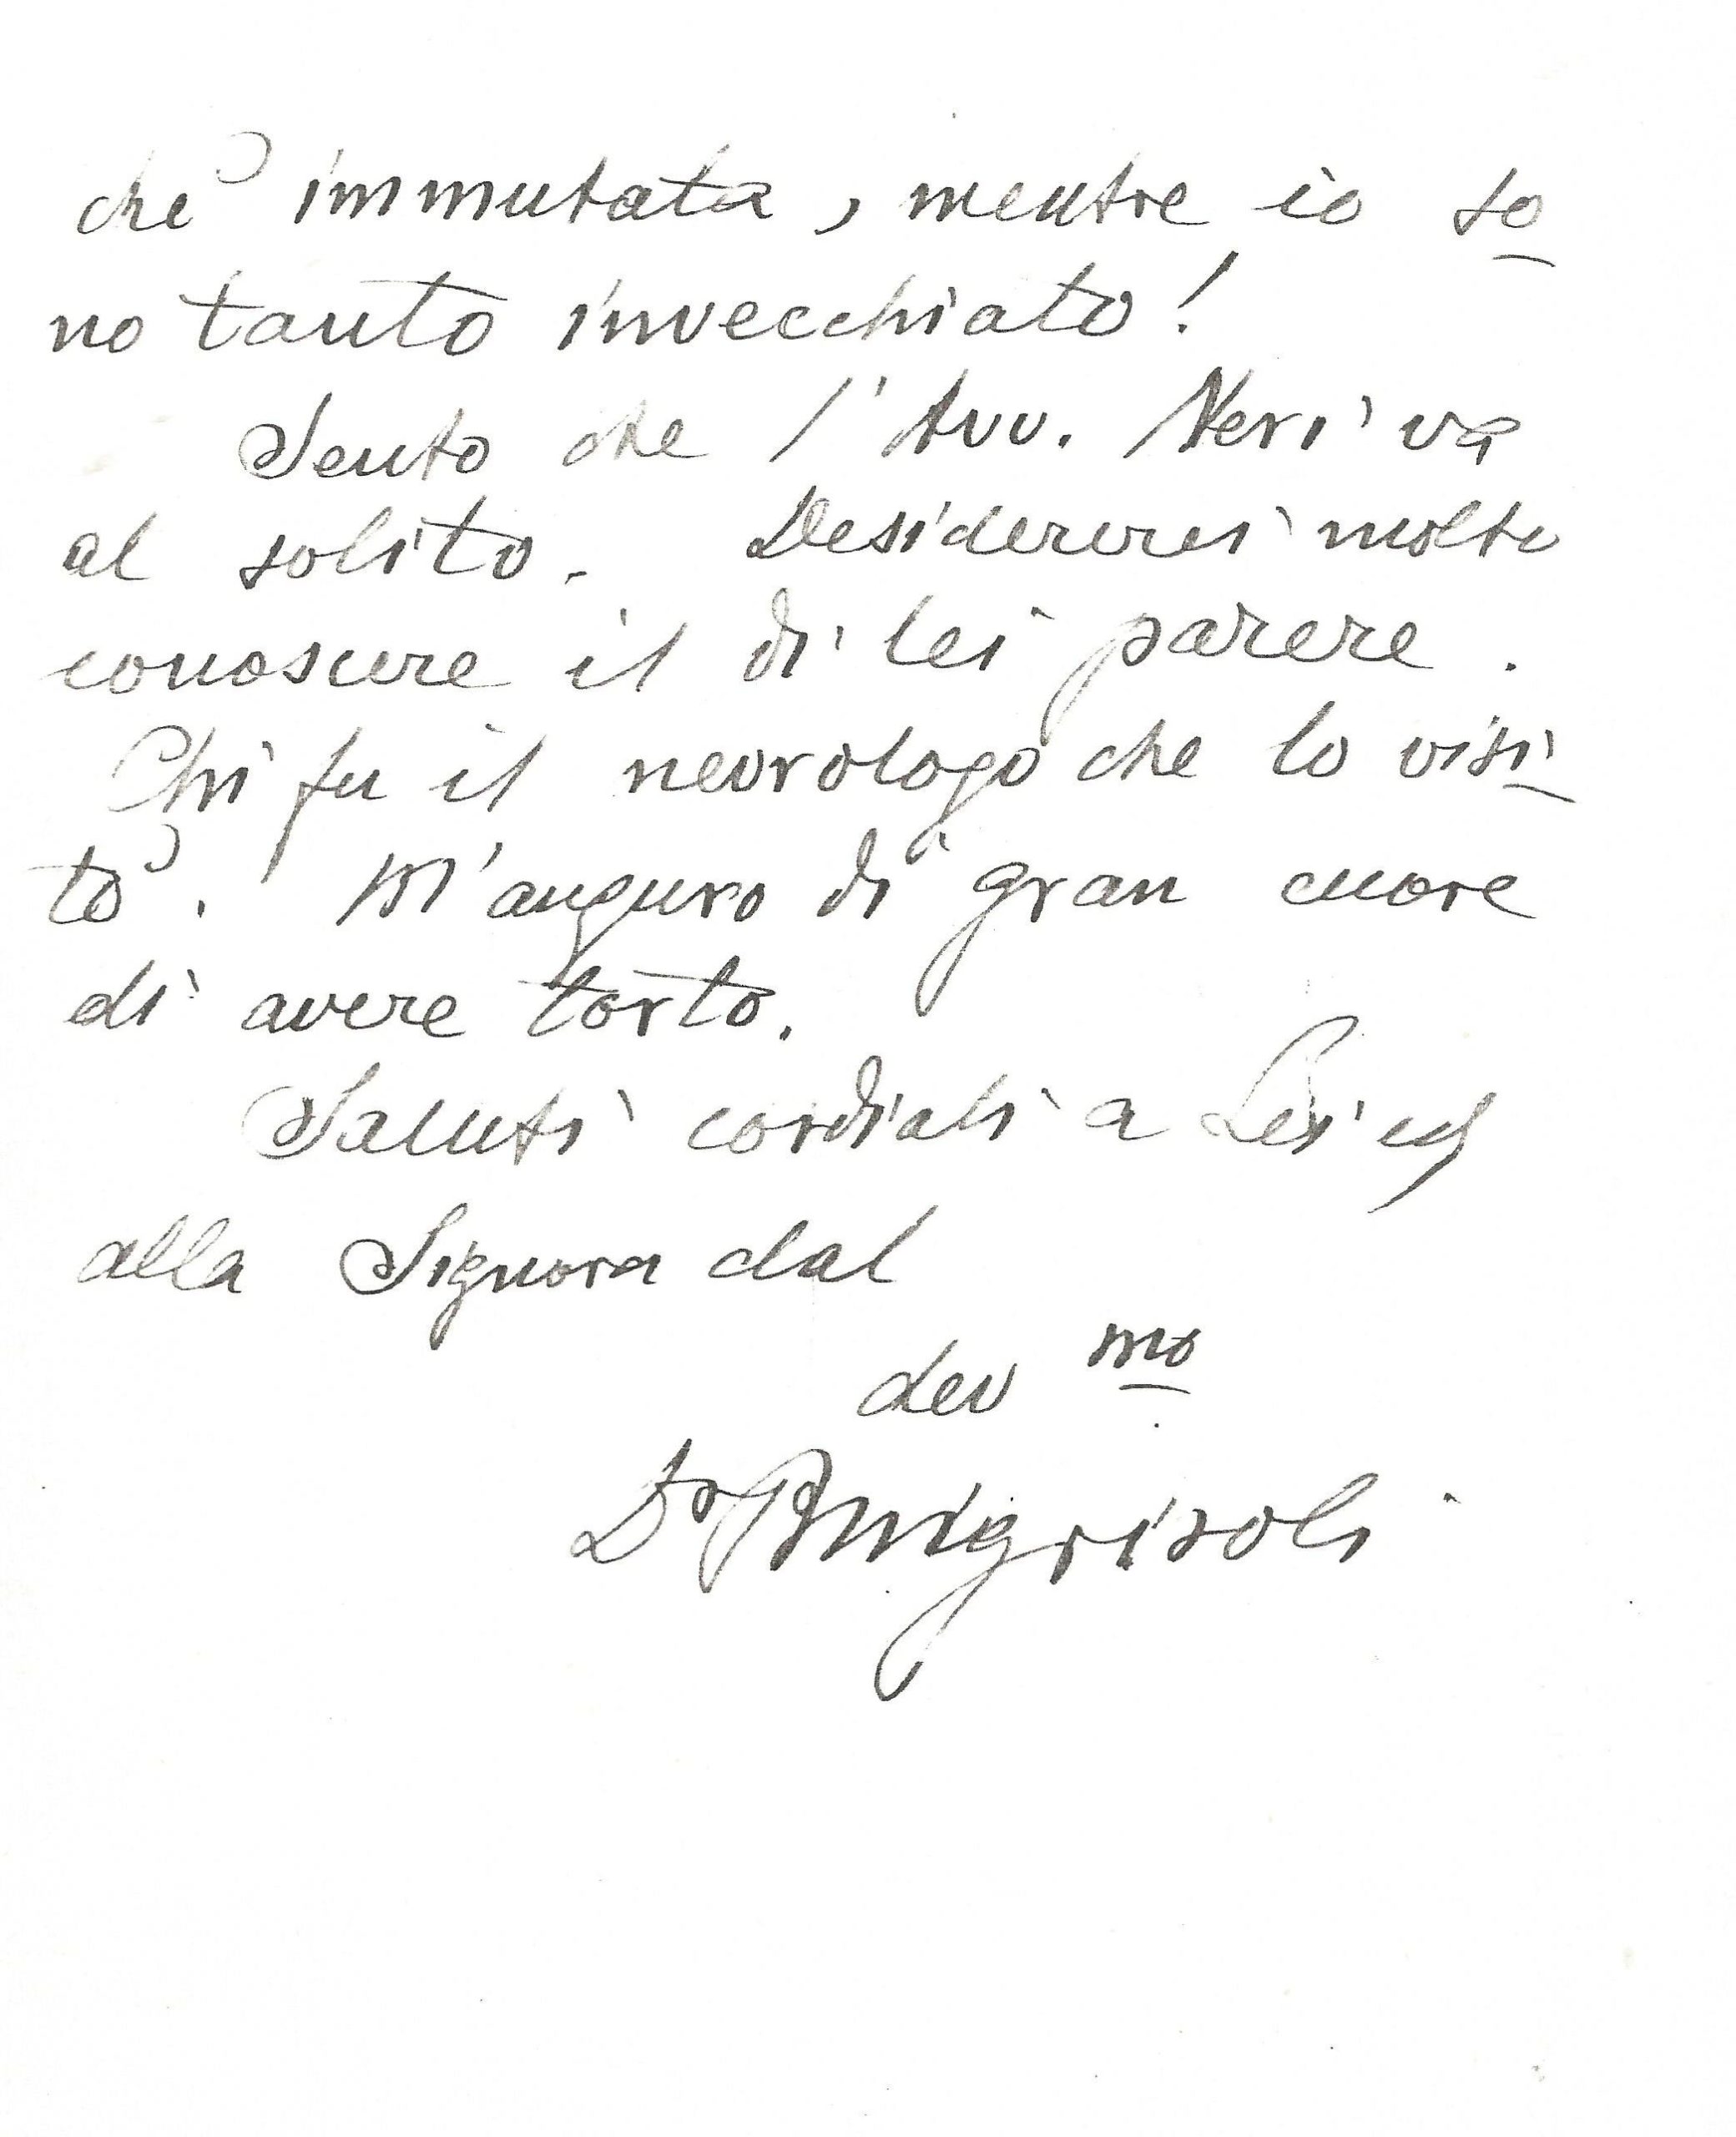 chè immutata, mentre io so
no tanto invecchiato!
Sento che l'Avv. Neri va
al solito. Desidererei molto
conoscere il di lei parere.
Chi fu il nevrologo che lo visi
tò? M'auguro di gran cuore
di avere torto.
Saluti cordiali a Lei ed
alla Signora dal
dev mo
Dr Puigrisoli